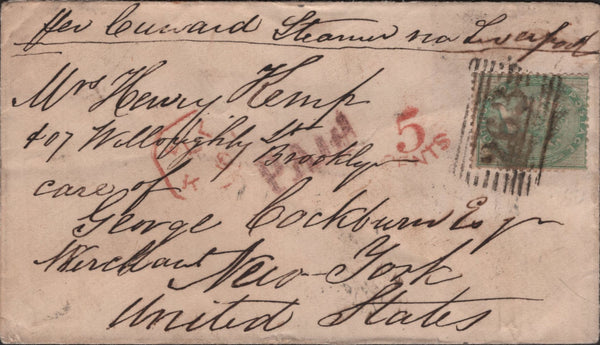 Per Cunard Steamer via Liverpool
Mrs Henry Hemp
407 Willoughby St
Brooklyn
PAID
5
CENTS
care of
George Cockburn Esqr
Merchant New-York
United States